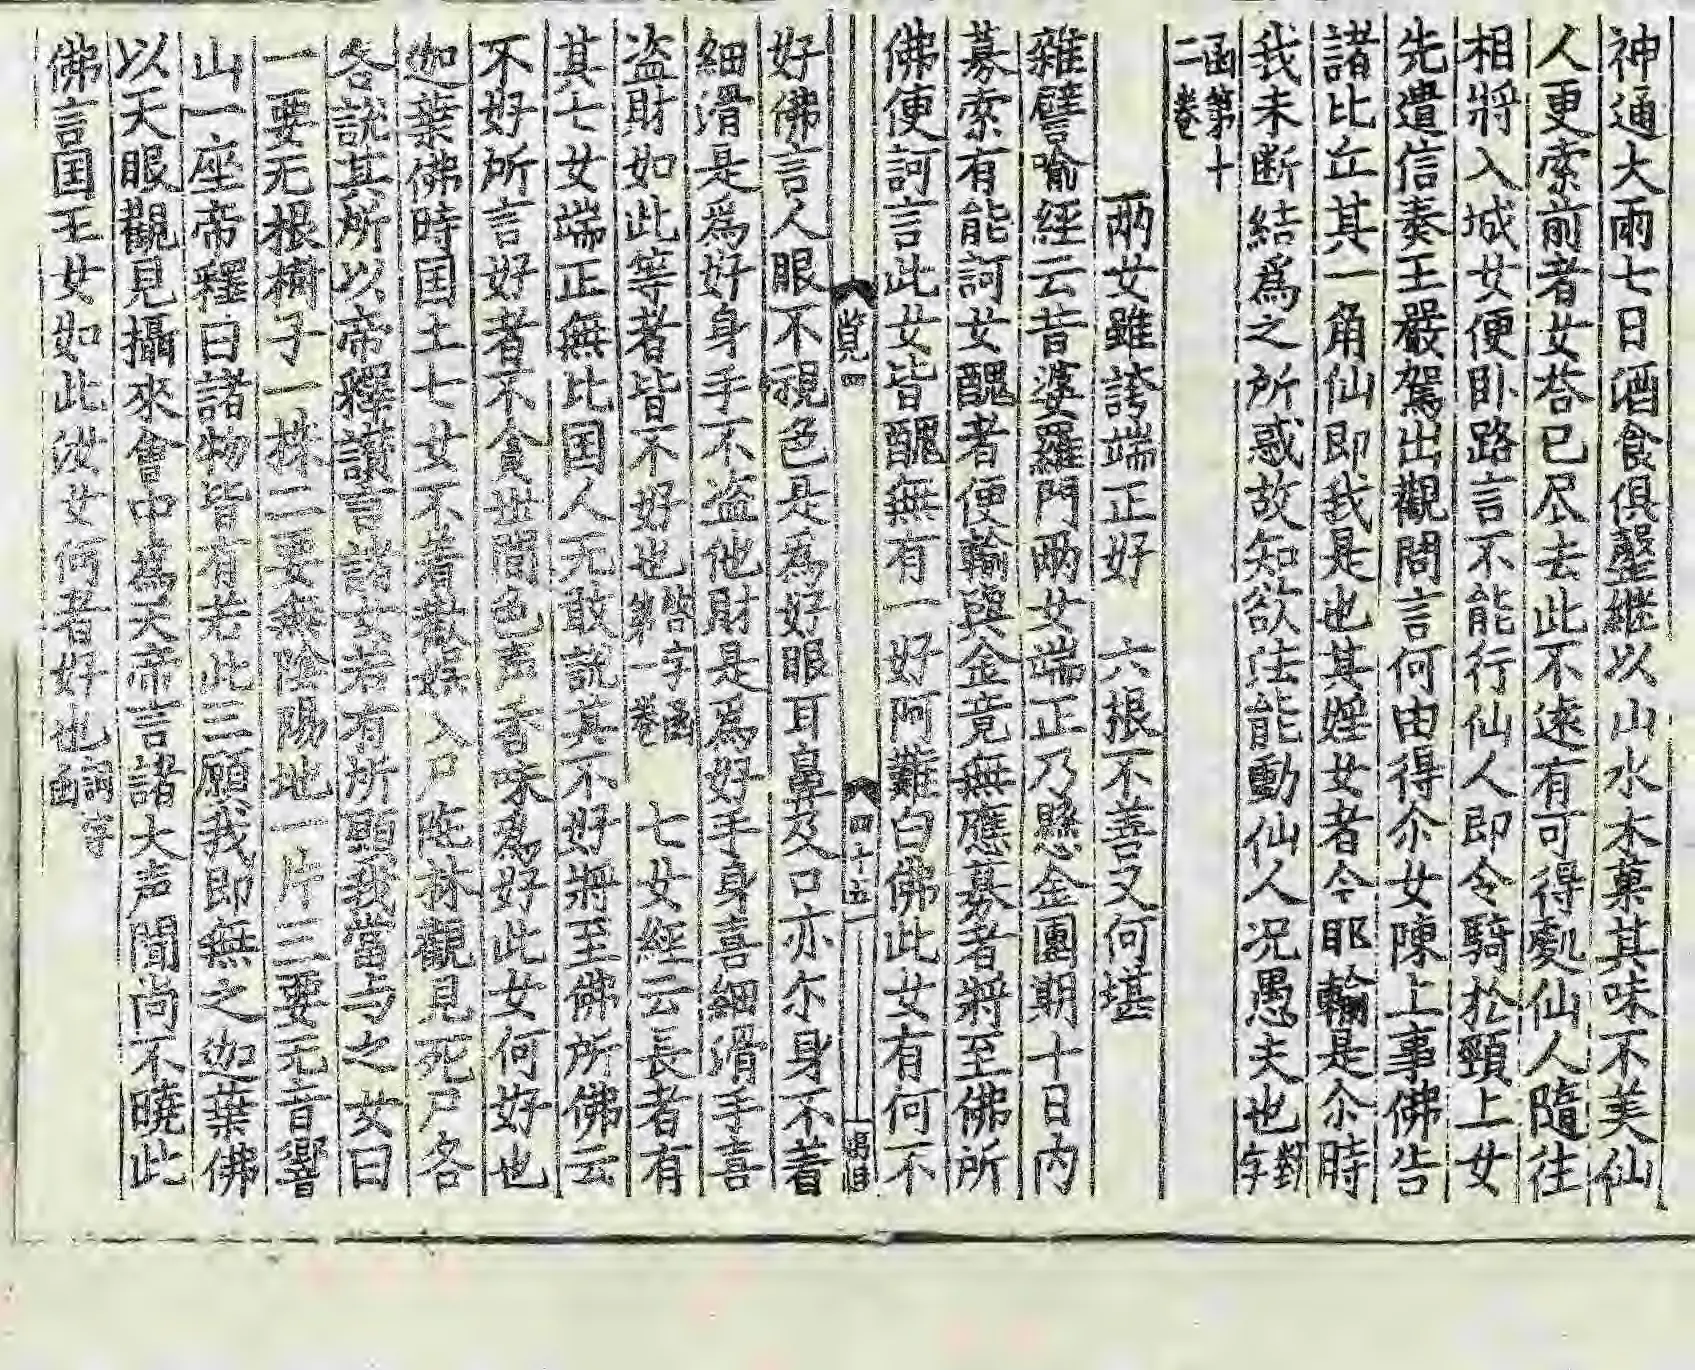 神通大雨七日酒食俱罄継以山水木菓其味不美仙
人更索前者女荅已尽去此不遠有可得処仙人隨往
相將入城女便卧路言不能行仙人即令騎於頸上女
先遣信奏王嚴駕出觀問言何由得尒女陳上事佛告
諸比丘其一角仙即我是也其婬女者今耶輸是尒時
我未断結爲之所惑故知欲法能動仙人况愚夫也對字
函第十
二卷
兩女雖誇端正好　六根不善又何堪
雜譬喻經云昔婆羅門兩女端正乃懸金圓期十日内
募索有能訶女醜者便輸與金竟無應募者將至佛所
佛便訶言此女皆醜無有一好阿難白佛此女有何不
覔四
四十五
好佛言人眼不視色是爲好眼耳鼻及口亦尔身不着
細滑是爲好身手不盗他財是爲好手身喜細滑手喜
盗財如此等者皆不好也皆字函第一卷　七女經云長者有
其七女端正無比国人无敢説其不好將至佛所佛云
不好所言好者不貪世間色声香味爲好此女何好也
迦葉佛時国土七女不着歡娱入尸陁林觀見死尸各
各説其所以帝釋讃言諸女若有所願我當与之女曰
一要无根樹子一株二要無陰陽地一片三要无音響
山一座帝釋曰諸物皆有若此三願我即無之迦葉佛
以天眼觀見攝來會中爲天帝言諸大声聞尚不曉此
佛言国王女如此汝女何者好也